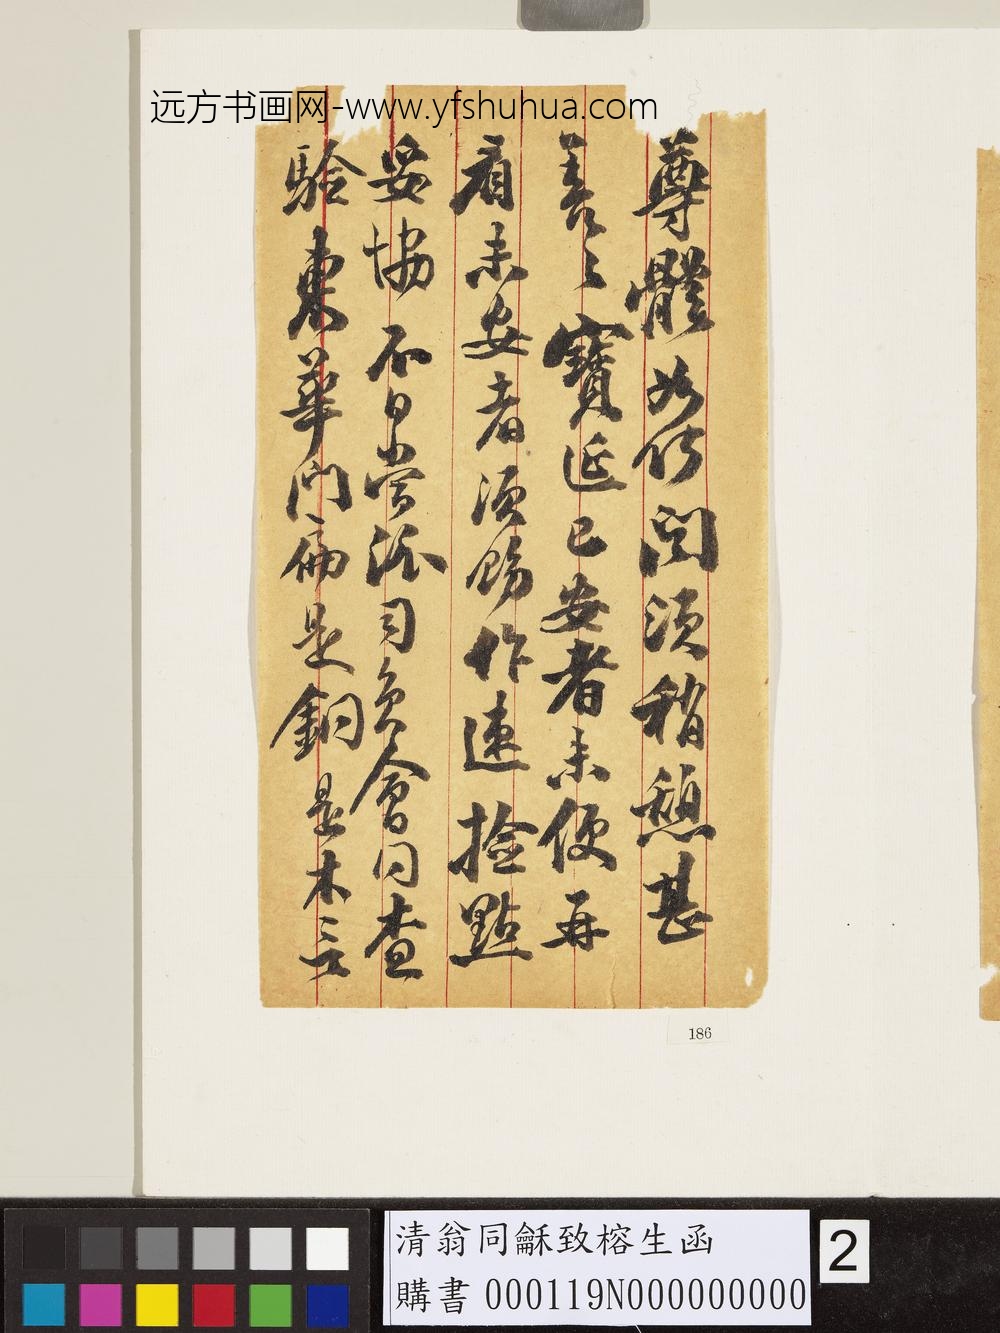 远方书画网-www.yfshuhua.com
尊體如何閱須稍憩甚
善々寶延已安者未便再
看未安者須賜作速撿點
妥協不日當派司員會同查
驗東華門扁是銅是木三言
186
清翁同龢致榕生函
購書 000119N000000000
2